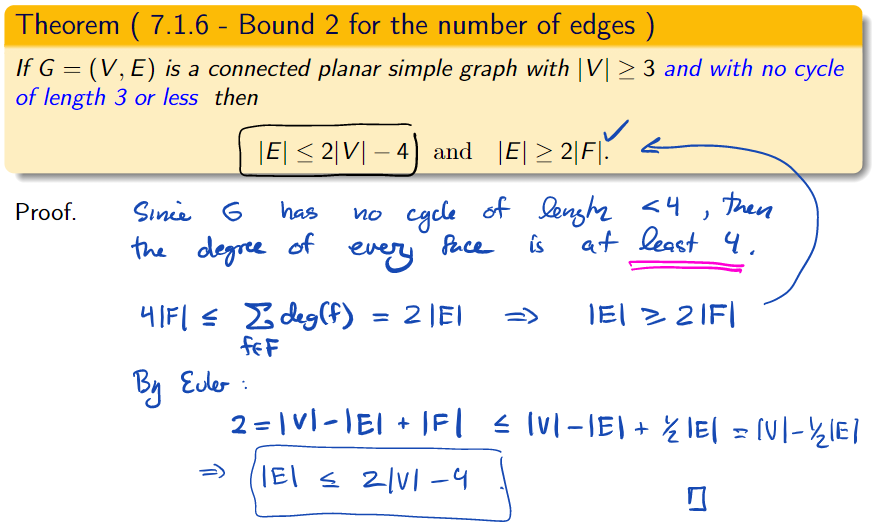 Theorem ( 7.1.6 - Bound 2 for the number of edges )
If G = (V, E) is a connected planar simple graph with |V| ≥ 3 and with no cycle
of length 3 or less then
|E| ≤ 2|V| − 4 and |E| ≥ 2|F|. ✓
Proof. Since G has no cycle of length <4, then
the degree of every face is at least 4.
4|F| ≤ ∑ deg(f) = 2|E| ⇒ |E| ≥ 2|F|
f∈F
By Euler :
2 = |V| - |E| + |F| ≤ |V| - |E| + ½|E| = |V| - ½|E|
⇒ |E| ≤ 2|V| - 4